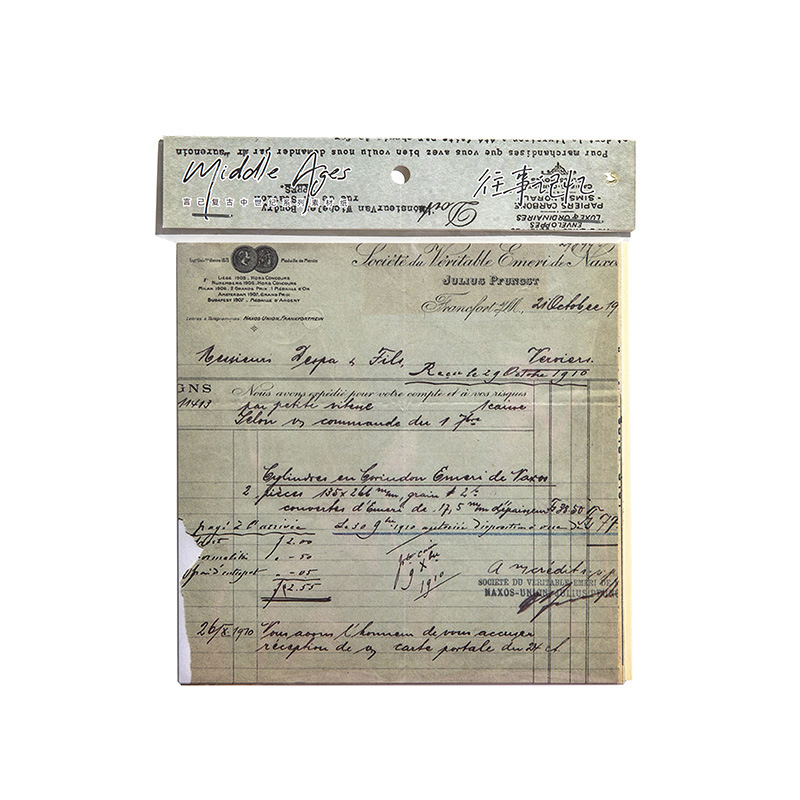 Middle Ages
往事记忆
言己复古中世纪系列素材纸
Pour marchandises que vous avez bien voulu nous demander par mr Laurencin
Monsieur Van Wichele Bondry
rue de la Station
Doit
ENVELOPPES
LUXE & ORDINAIRES
PAPIERS CARBONE
Médaille de Mérite
LIEGE 1905 · HORS CONCOURS
NUREMBERG 1906 · HORS CONCOURS
MILAN 1906 · 2 GRANDS PRIX · 1 MÉDAILLE D'OR
AMSTERDAM 1907 · GRAND PRIX
BUDAPEST 1907 · MÉDAILLE D'ARGENT
Lettres & Télégrammes: NAXOS-UNION, FRANKFORTMEIN
Société du Véritable Emeri de Naxos
JULIUS PFUNGST
Francfort s/M., 21 Octobre 19
Messieurs Despa & Fils, Verviers.
Reçu le 29 Octobre 1910
GNS
Nous avons expédié pour votre compte et à vos risques
11413
par petite vitesse 1 caisse
Selon vs commande du 1 7bre
Cylindres en Corindon Emeri de Naxos
2 pièces 135 x 266 m/m, grain # 2
couvertes d'Emeri de 17,5 m/m d'épaisseur Fr 39.50
payé à l'arrivée
2.00
-50
-05
2.55
9 Xbre
1910
SOCIÉTÉ DU VERITABLE EMERI DE
NAXOS-UNION JULIUS PFUNG
26/X. 1910 Nous avons l'honneur de vous accuser
réception de vs carte postale du 24 ct